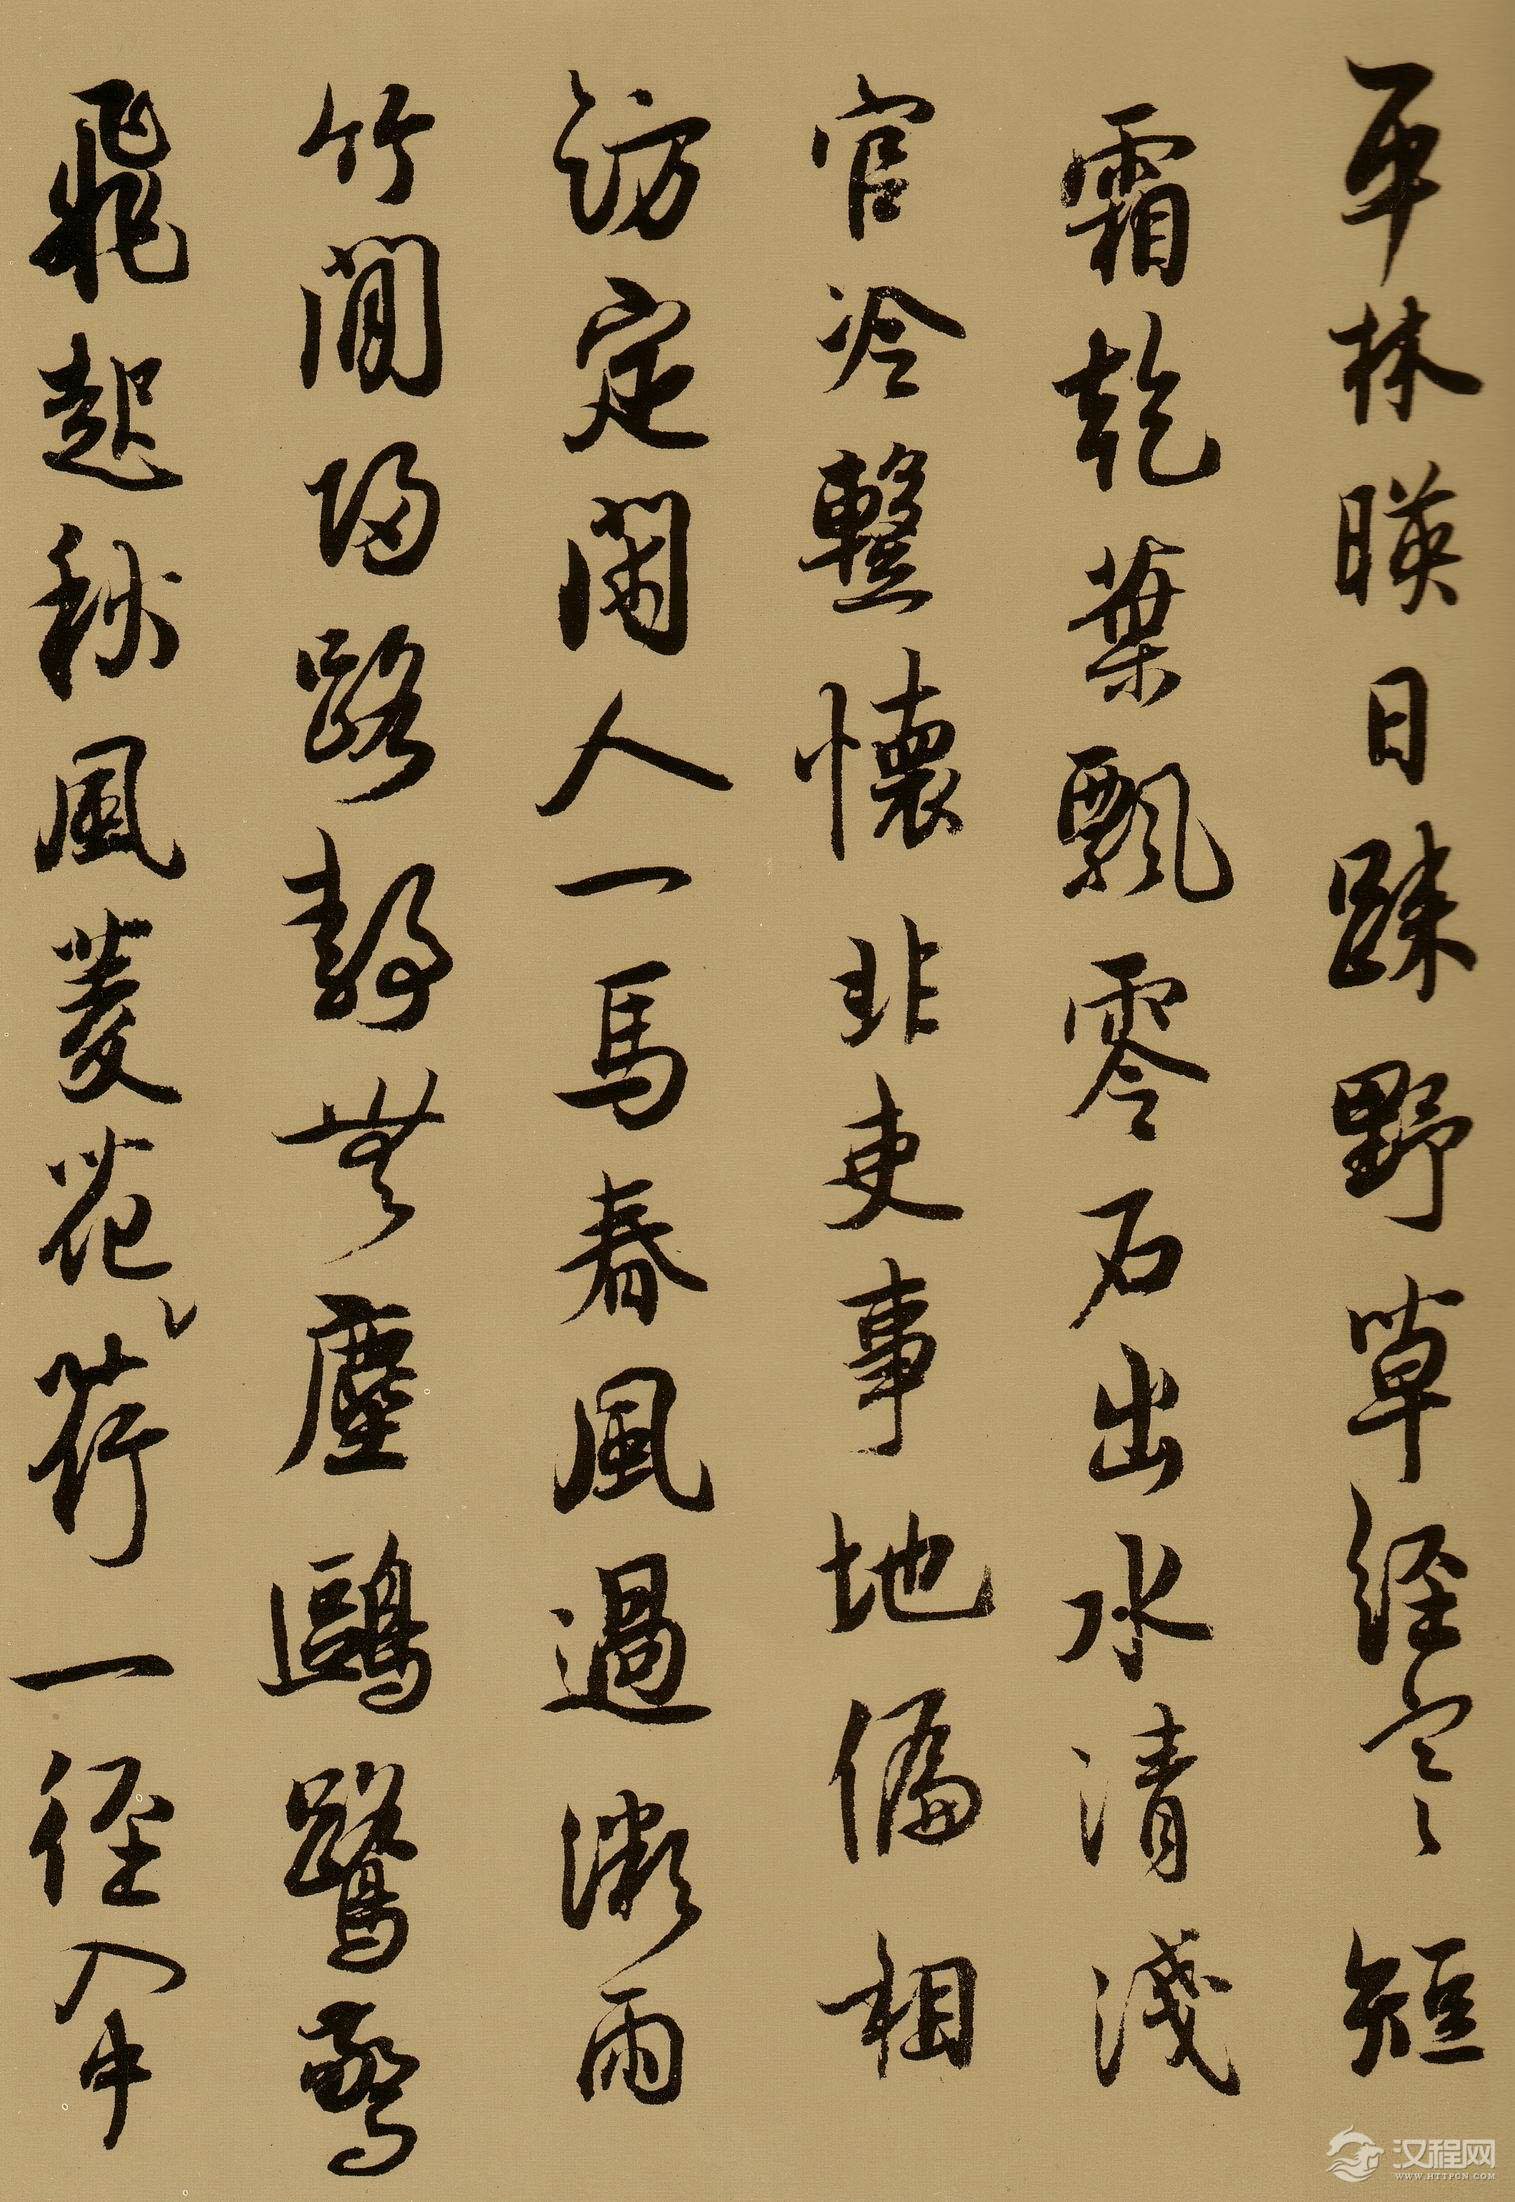 平林暎日踈野草経寒短
霜乾葉飄零石出水清淺
官冷繫懷非吏事地偏相
訪定閑人一馬春風過微雨
竹間歸路静無塵鷗鷺驚
飛起秋風菱花荇一徑入中
汉程网
WWW.HTTPCN.COM